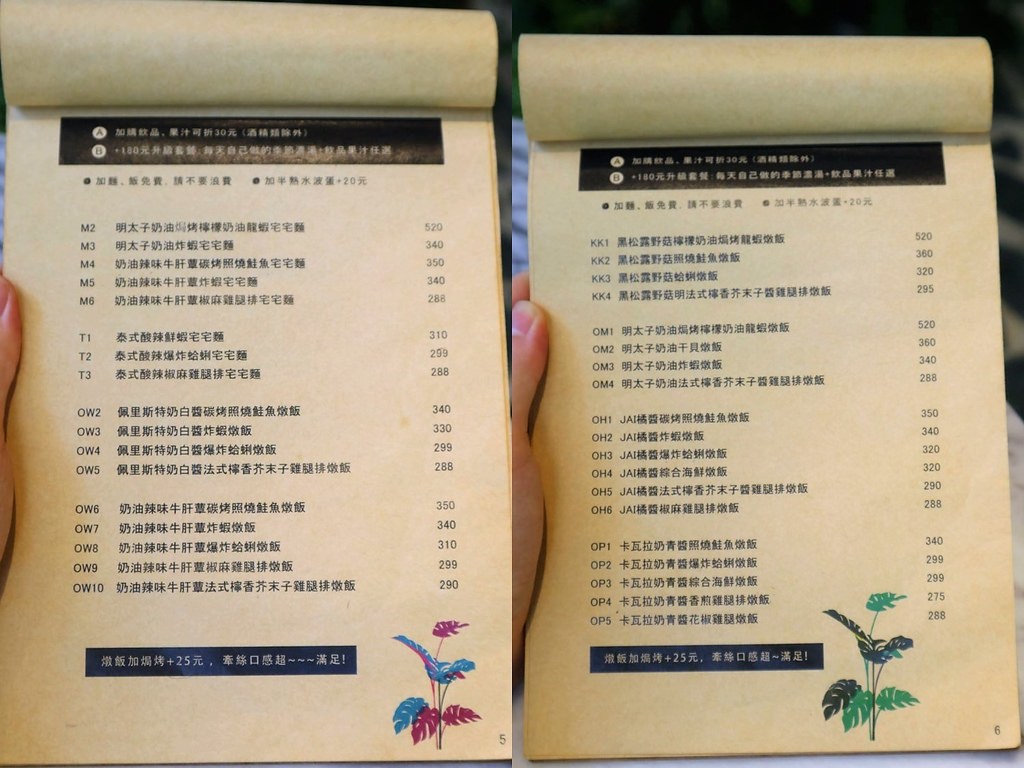 A 加購飲品、果汁可折30元（酒精類除外）
B +180元升級套餐：每天自己做的季節濃湯+飲品果汁任選
●加麵、飯免費，請不要浪費 ●加半熟水波蛋+20元
M2 明太子奶油焗烤檸檬奶油龍蝦宅宅麵 520
M3 明太子奶油炸蝦宅宅麵 340
M4 奶油辣味牛肝蕈碳烤照燒鮭魚宅宅麵 350
M5 奶油辣味牛肝蕈炸蝦宅宅麵 340
M6 奶油辣味牛肝蕈椒麻雞腿排宅宅麵 288
T1 泰式酸辣鮮蝦宅宅麵 310
T2 泰式酸辣爆炸蛤蜊宅宅麵 299
T3 泰式酸辣椒麻雞腿排宅宅麵 288
OW2 佩里斯特奶白醬碳烤照燒鮭魚燉飯 340
OW3 佩里斯特奶白醬炸蝦燉飯 330
OW4 佩里斯特奶白醬爆炸蛤蜊燉飯 299
OW5 佩里斯特奶白醬法式檸香芥末子雞腿排燉飯 288
OW6 奶油辣味牛肝蕈碳烤照燒鮭魚燉飯 350
OW7 奶油辣味牛肝蕈炸蝦燉飯 340
OW8 奶油辣味牛肝蕈爆炸蛤蜊燉飯 310
OW9 奶油辣味牛肝蕈椒麻雞腿排燉飯 299
OW10 奶油辣味牛肝蕈法式檸香芥末子雞腿排燉飯 290
燉飯加焗烤+25元，牽絲口感超~~~滿足!
5
A 加購飲品、果汁可折30元（酒精類除外）
B +180元升級套餐：每天自己做的季節濃湯+飲品果汁任選
●加麵、飯免費，請不要浪費 ●加半熟水波蛋+20元
KK1 黑松露野菇檸檬奶油焗烤龍蝦燉飯 520
KK2 黑松露野菇照燒鮭魚燉飯 360
KK3 黑松露野菇蛤蜊燉飯 320
KK4 黑松露野菇明法式檸香芥末子醬雞腿排燉飯 295
OM1 明太子奶油焗烤檸檬奶油龍蝦燉飯 520
OM2 明太子奶油干貝燉飯 360
OM3 明太子奶油炸蝦燉飯 340
OM4 明太子奶油法式檸香芥末子醬雞腿排燉飯 288
OH1 JAI橘醬碳烤照燒鮭魚燉飯 350
OH2 JAI橘醬炸蝦燉飯 340
OH3 JAI橘醬爆炸蛤蜊燉飯 320
OH4 JAI橘醬綜合海鮮燉飯 320
OH5 JAI橘醬法式檸香芥末子醬雞腿排燉飯 290
OH6 JAI橘醬椒麻雞腿排燉飯 288
OP1 卡瓦拉奶青醬照燒鮭魚燉飯 340
OP2 卡瓦拉奶青醬爆炸蛤蜊燉飯 299
OP3 卡瓦拉奶青醬綜合海鮮燉飯 299
OP4 卡瓦拉奶青醬香煎雞腿排燉飯 275
OP5 卡瓦拉奶青醬花椒雞腿燉飯 288
燉飯加焗烤+25元，牽絲口感超~滿足!
6